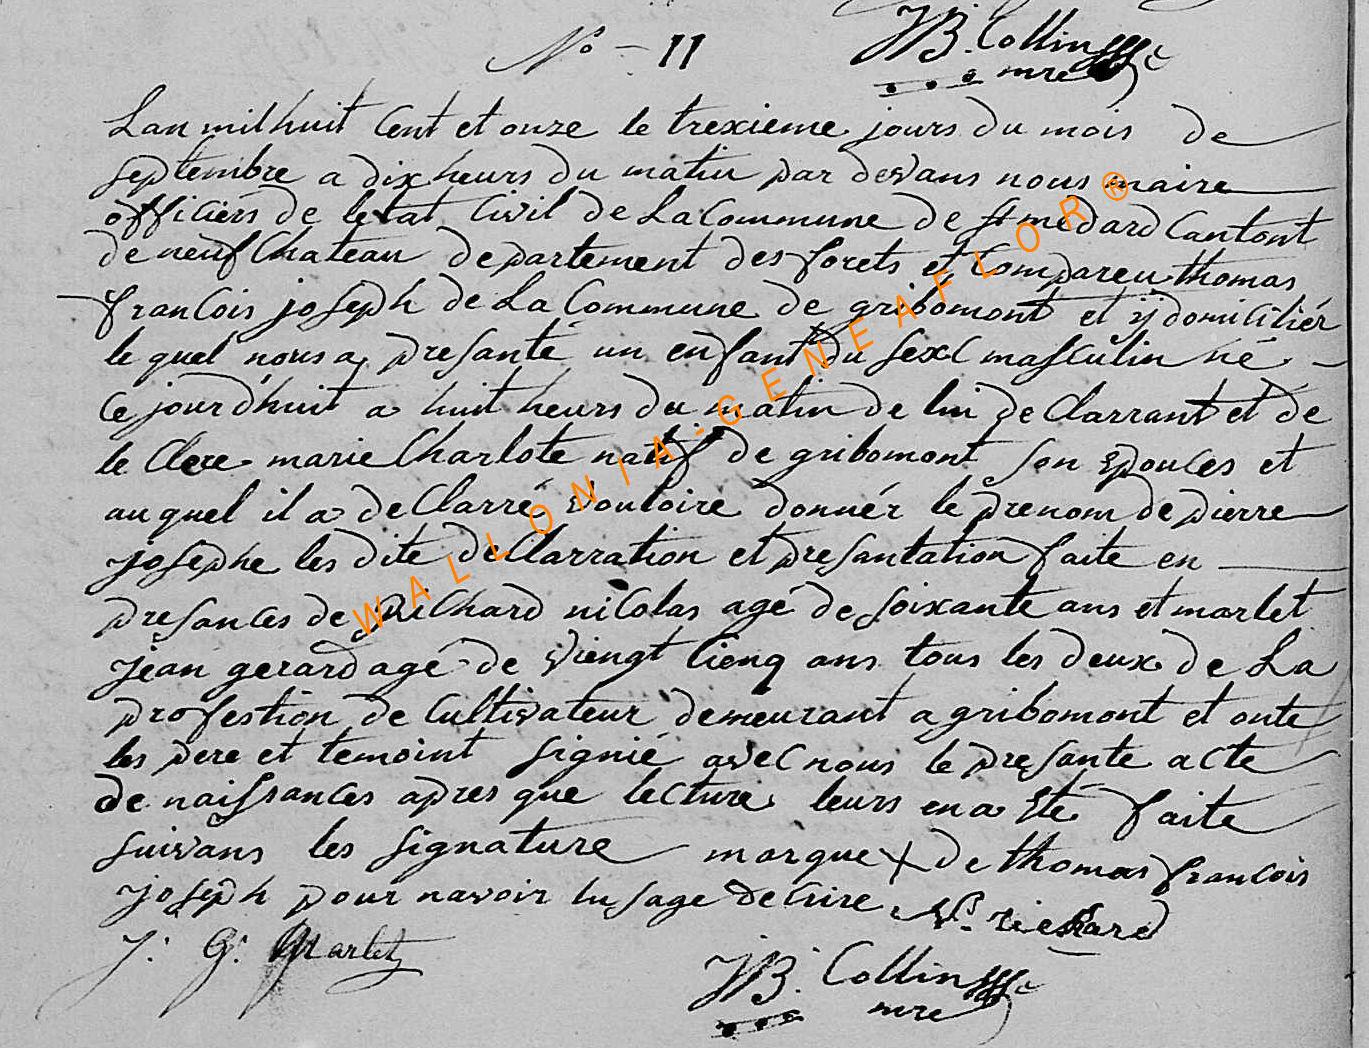 JB. Collin
mre
No - 11
Lan mil huit Cent et onze le trexieme jours du mois de
septembre a dix heurs du matin par devans nous maire
officiérs de letat Civil de La Commune de St medard Cantont
de neufChateau departement des forets est Compareu thomas
francois joseph de La Commune de gribomont et ÿ domicilier
le quel nous a presanté un enfant du sexe masculin né
Ce jourdhuit a huit heurs du matin de lui de Clarrant et de
le Clere marie Charlote natif de gribomont son epouces et
auquel il a de Clarré vouloire donnér le prenom de pierre
josephe les dite deClarration et presantation faite en
presances de richard nicolas agé de soixante ans et marlet
jean gerard agé de viengt Cienq ans tous les deux de La
profestion de Cultivateur demeurant a gribomont et onte
les pere et temoint signié avec nous le presante acte
de naissances apres que lecture leurs en a eté faite
suivans les signature marque + de thomas francois
joseph pour navoir lusage decrire Ns. richard
J: G: Marlet
JB. Collin
mre
WALLONIA-GENEAFLOR®